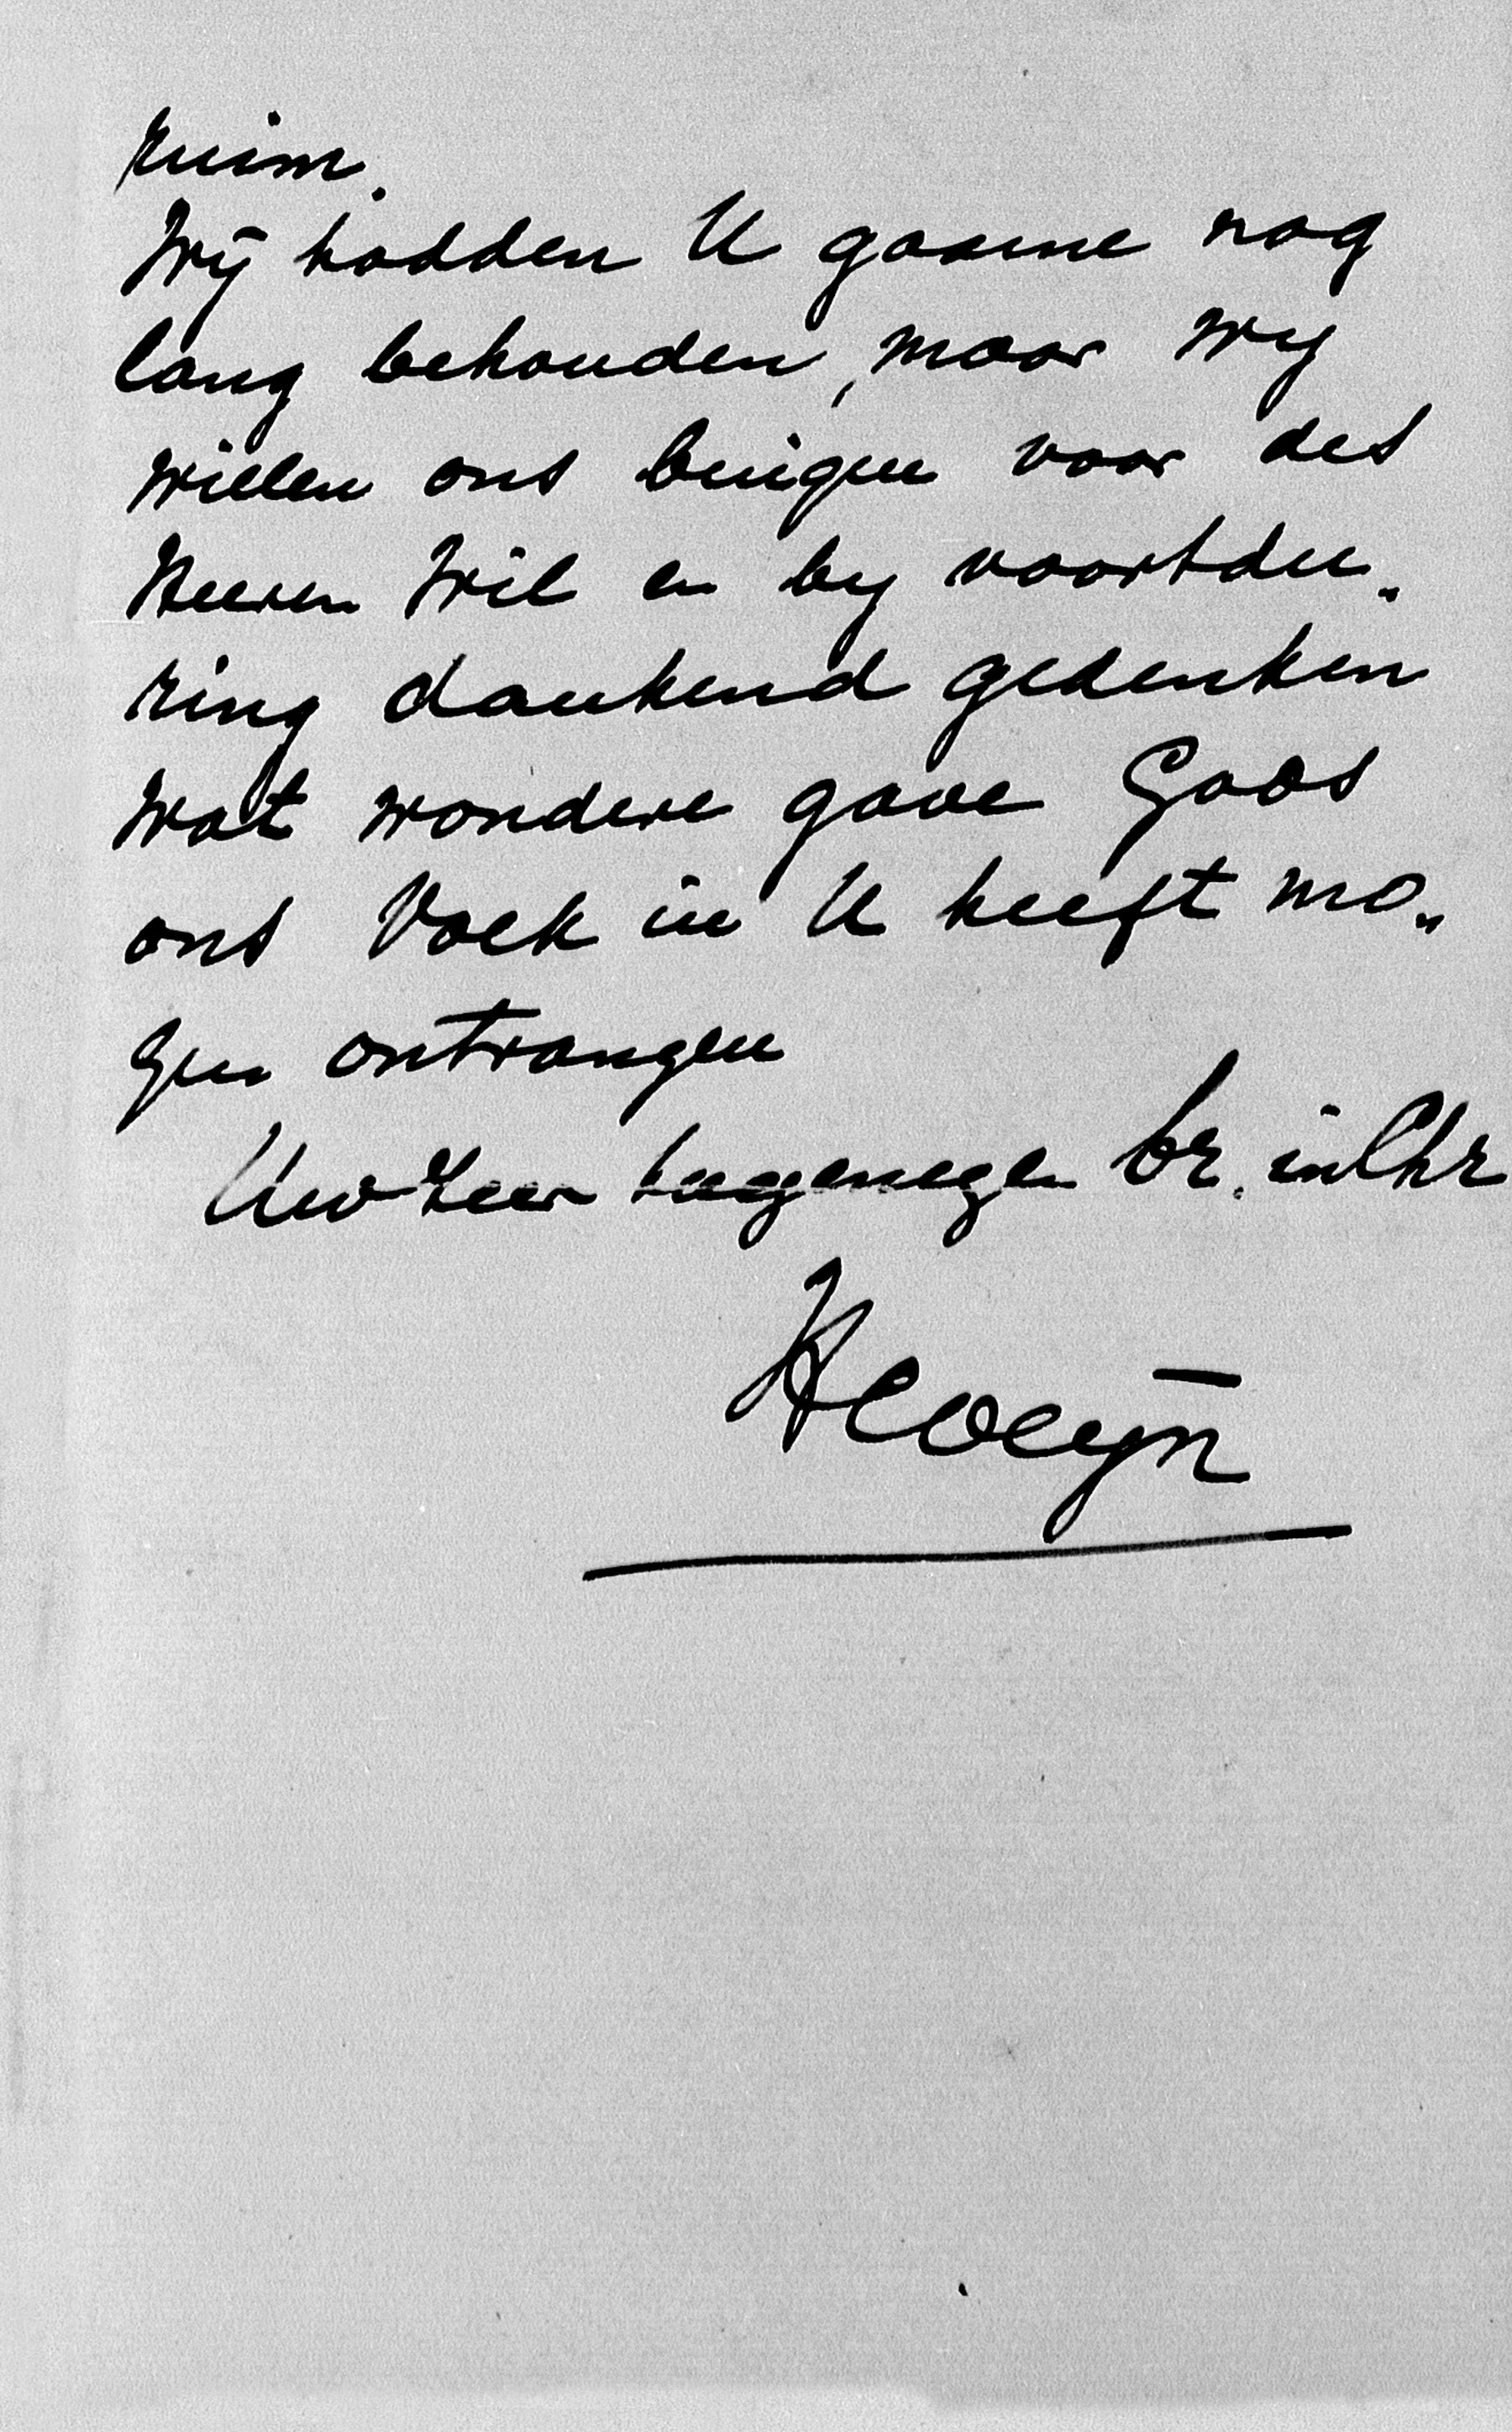 ruim.
Wij hadden U gaarne nog
lang behouden, maar wy
willen ons buigen voor des
Heeren Wil en by voortdu„
ring dankend gedenken
wat wondere gave Gods
ons Volk in U heeft mo„
gen ontvangen
Uw zeer toegenegen br. in Chr